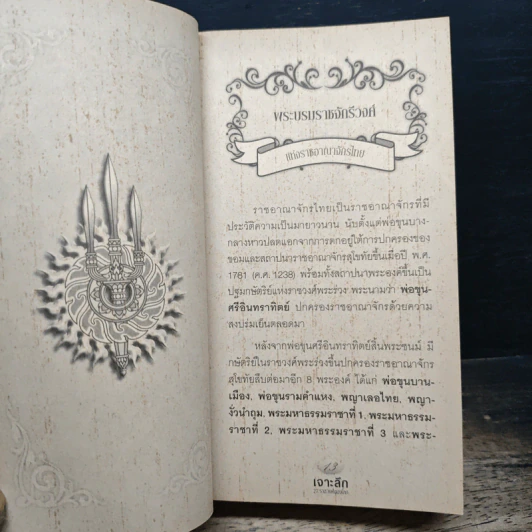 พระบรมราชจักรีวงศ์
แห่งราชอาณาจักรไทย
ราชอาณาจักรไทยเป็นราชอาณาจักรที่มี
ประวัติความเป็นมายาวนาน นับตั้งแต่พ่อขุนบาง-
กลางหาวปลดแอกจากการตกอยู่ใต้การปกครองของ
ขอมและสถาปนาราชอาณาจักรสุโขทัยขึ้นเมื่อปี พ.ศ.
1781 (ค.ศ. 1238) พร้อมทั้งสถาปนาพระองค์ขึ้นเป็น
ปฐมกษัตริย์แห่งราชวงศ์พระร่วง พระนามว่า พ่อขุน-
ศรีอินทราทิตย์ ปกครองราชอาณาจักรด้วยความ
สงบร่มเย็นตลอดมา
หลังจากพ่อขุนศรีอินทราทิตย์สิ้นพระชนม์ มี
กษัตริย์ในราชวงศ์พระร่วงขึ้นปกครองราชอาณาจักร
สุโขทัยสืบต่อมาอีก 8 พระองค์ ได้แก่ พ่อขุนบาน-
เมือง, พ่อขุนรามคำแหง, พญาเลอไทย, พญา-
งั่วนำถุม, พระมหาธรรมราชาที่ 1, พระมหาธรรม-
ราชาที่ 2, พระมหาธรรมราชาที่ 3 และพระ-
13
เจาะลึก